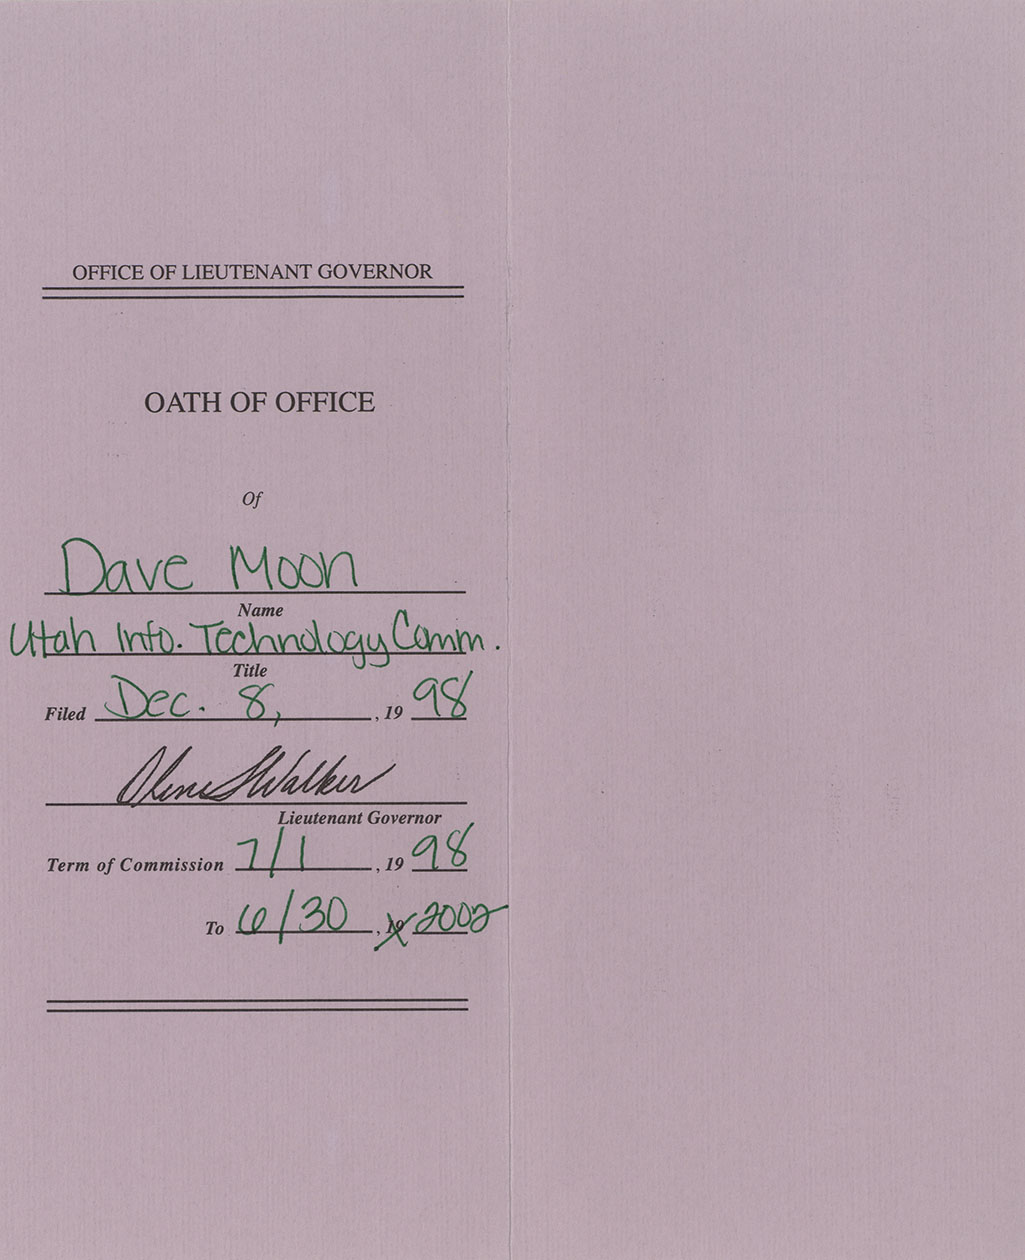 OFFICE OF LIEUTENANT GOVERNOR
OATH OF OFFICE
Of
Dave Moon
Name
Utah Info. Technology Comm.
Title
Filed Dec. 8, , 19 98
Olene S Walker
Lieutenant Governor
Term of Commission 7/1 , 19 98
To 6/30 , 19 2002